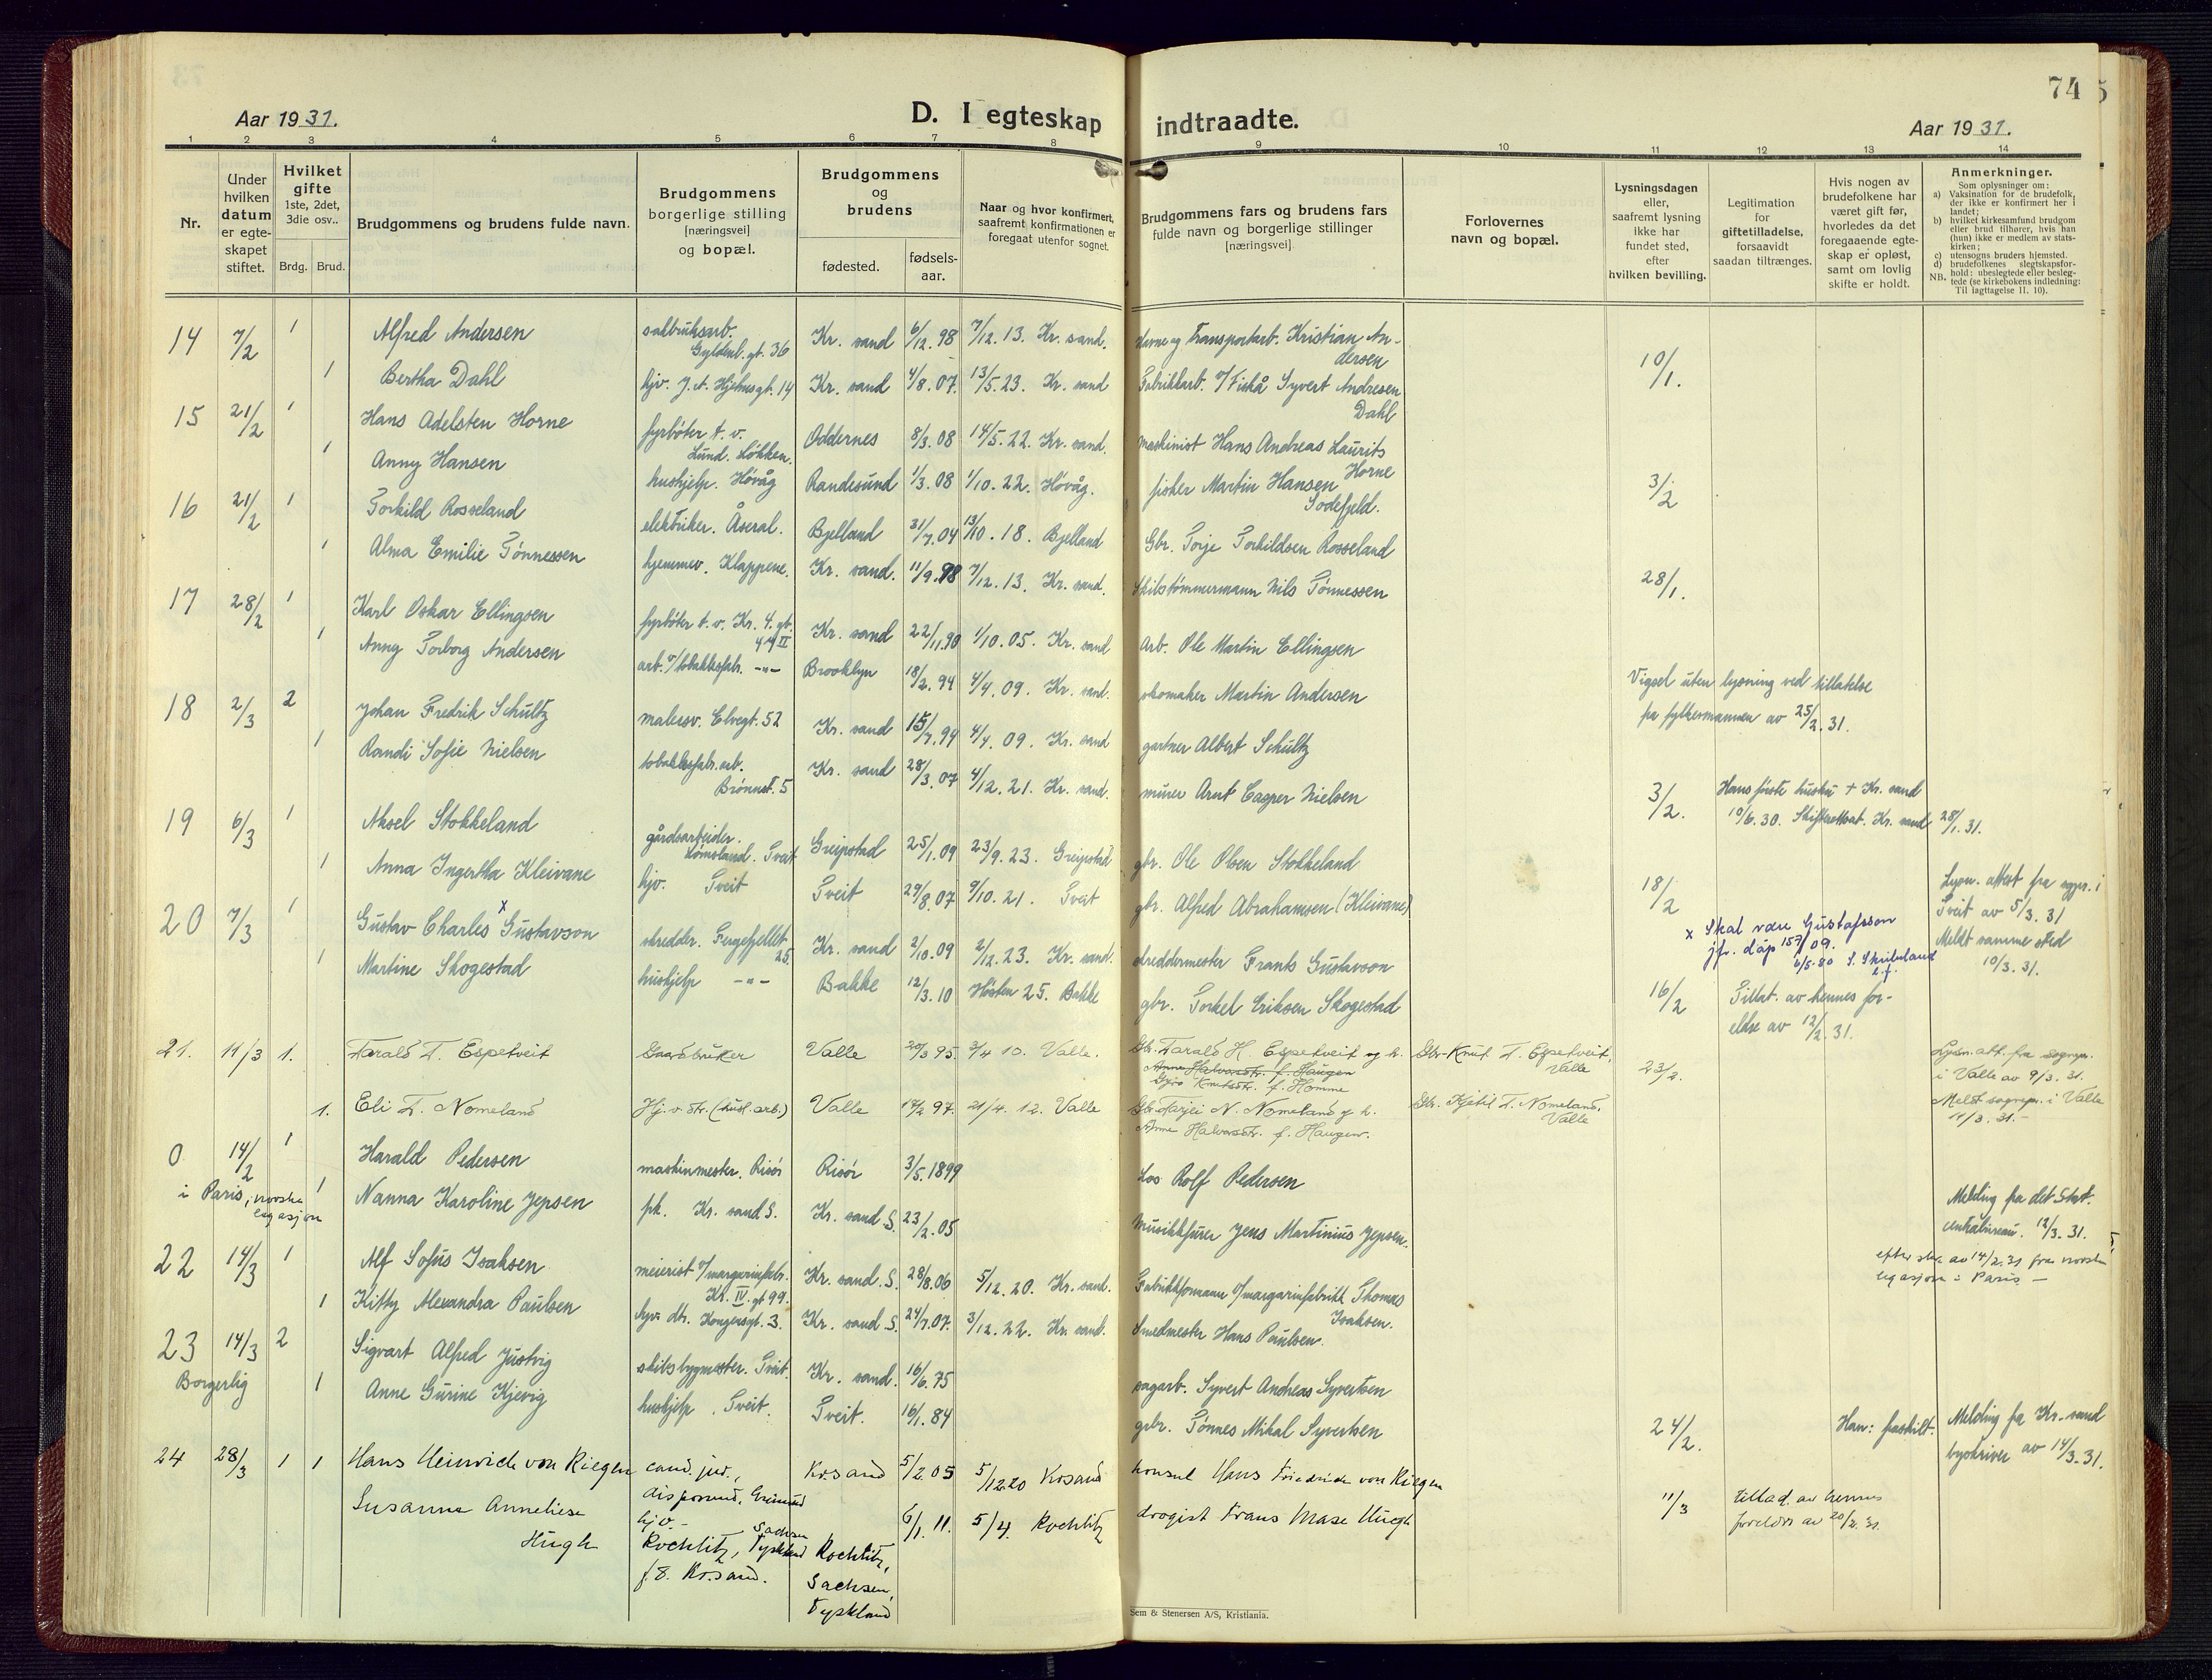 74
Aar 1931.
D. I egteskap indtraadte.
Aar 1931.
1 2 3 4 5 6 7 8 9 10 11 12 13 14
Nr.
Under hvilken datum er egteskapet stiftet.
Hvilket gifte 1ste, 2det, 3die osv..
Brdg. Brud.
Brudgommens og brudens fulde navn.
Brudgommens borgerlige stilling [næringsvei] og bopæl.
Brudgommens og brudens
fødested.
fødsels-aar.
Naar og hvor konfirmert, saafremt konfirmationen er foregaat utenfor sognet.
Brudgommens fars og brudens fars fulde navn og borgerlige stillinger [næringsvei]
Forlovernes navn og bopæl.
Lysningsdagen eller, saafremt lysning ikke har fundet sted, efter hvilken bevilling.
Legitimation for giftetilladelse, forsaavidt saadan tiltrænges.
Hvis nogen av brudefolkene har været gift før, hvorledes da det foregaaende egteskap er opløst, samt om lovlig skifte er holdt.
Anmerkninger.
Som oplysninger om:
a) Vaksination for de brudefolk, der ikke er konfirmert her i landet;
b) hvilket kirkesamfund brudgom eller brud tilhører, hvis han (hun) ikke er medlem av statskirken;
c) utensogns bruders hjemsted.
d) brudefolkenes slegtskapsforhold: ubeslegtede eller beslegtede (se kirkebokens indledning:
NB. Til iagttagelse II. 10).
14 7/2 1 Alfred Andersen sakbruksarb. Gyldenl. gt. 36 Kr. sand 6/12. 98 7/12. 13. Kr. sand. Havne og Transportarb. Kristian Andersen 10/1.
1 Bertha Dahl hjv. Kr. sand 4/8. 07. 13/5. 23. Kr. sand Fabrikkarb. v/ Fiskå Syvert Andresen Dahl
15 21/2 1 Hans Adelsten Horne fyrbøter t. v. Lund. Løkken. Oddernes 8/3. 08 14/5. 22. Kr. sand. maskinist Hans Andreas Laurits Horne 3/2
1 Anny Hansen hushjelp. Høvåg Randesund 1/3. 08 1/10. 22. Høvåg. fisker Martin Hansen Sodefjeld.
16 21/2 1 Torkild Rosseland elektriker. Åseral. Bjelland 31/7. 04 13/10. 18. Bjelland Gbr. Torje Torkildsen Rosseland 28/1.
1 Alma Emilie Tønnessen hjemmev. Klappene. Kr. sand. 11/9. 98 7/12. 13. Kr. sand. Skibstømmermann Nils Tønnessen
17 28/2 1 Karl Oskar Ellingsen fyrbøter t. v. Kr. 4. gt. 44 II Kr. sand 22/11. 90 1/10. 05. Kr. sand Arb. Ole Martin Ellingsen Vigsel uten lysning ved tillatelse fra fylkesmannen av 25/2. 31.
1 Anny Torborg Andersen arb. v/ tobakksfabr. -"- Brooklyn 18/2. 94 4/4. 09. Kr. sand. skomaker Martin Andersen
18 2/3 2 Johan Fredrik Schultz malersv. Elvegt. 52 Kr. sand 15/7. 94 4/4. 09. Kr. sand gartner Albert Schultz 3/2. Hans første hustru + Kr. sand 10/6. 30. Skifteattest. Kr. sand 28/1. 31.
1 Randi Sofie Nielsen tobakksfabr. arb. Brønnst. 5 Kr. sand 28/3. 07 4/12. 21. Kr. sand. murer Arnt Casper Nielsen
19 6/3 1 Aksel Stokkeland gårdsarbeider. Tveit Greipstad 25/1. 09 23/9. 23. Greipstad gbr. Ole Olsen Stokkeland 18/2 Lysn. attest fra sgpr. i Tveit av 5/3. 31 Meldt samme sted 10/3. 31.
1 Anna Ingertha Kleivane hjv. Tveit Tveit 29/8. 07 9/10. 21. Tveit gbr. Alfred Abrahamsen (Kleivane)
20 7/3 1 Gustav Charles x Gustavson skredder. Fergefjellet 25. Kr. sand 2/10. 09 2/12. 23. Kr. sand. skreddermester Frants Gustavson 16/2 Tillat. av hennes foreldre av 12/2. 31.
x Skal være Gustafsson jfr. dåp 157/09. 2/5-80 S. Skribeland
1 Martine Skogestad hushjelp -"- Bakke 12/3. 10 Høsten 25. Bakke gbr. Torkel Eriksen Skogestad
21. 11/3 1. Tarald T. Espetveit Gaardbruker Valle 20/3 95. 3/4 10. Valle. Gbr. Tarald H. Espetveit og h. Anne Halvorsdtr. f. Haugen Gyro Knutsdtr. f. Homme Gbr. Knut T. Espetveit, Valle 23/2. Lysn. att. fra sognepr. i Valle av 9/3. 31. Meldt sognepr. i Valle 11/3. 31.
1. Eli T. Nomeland Hj. v. dtr. (husl. arb.) Valle 14/2 97. 21/4. 12. Valle Gbr. Tarjei N. Nomeland og h. Anne Halvorsdtr. f. Haugen. Gbr. Kjetil T. Nomeland, Valle
0 14/2 1 Harald Pedersen maskinmester. Risør Risør 3/5. 1899 Los Rolf Pedersen Melding fra det Stat. centralbureau. 12/3. 31.
efter skr. av 14/2. 31 fra norske legasjon i Paris —
i Paris, norske legasjon 1 Nanna Karoline Jepsen pk. Kr. sand S. Kr. sand S. 23/2. 05 Musikkfurer Jens Martinius Jepsen.
22 14/3 1 Alf Sofus Isaksen meierist v/ margarinfabr. Kr. IV. gt 99. Kr. sand. S. 28/8. 06 5/12. 20. Kr. sand. Fabrikkformann v/ margarinfabrikk Thomas Isaksen.
1 Kitty Alexandra Paulsen hjv. dtr. Kongensgt. 3. Kr. sand S. 24/7. 07. 3/12. 22. Kr. sand. Smedmester Hans Paulsen.
23 14/3 2 Sigvart Alfred Justvig skibsbygmester. Tveit. Kr. sand. 16/6. 75 sagarb. Syvert Andreas Syvertsen 24/2. Han: fraskilt. Melding fra Kr. sand byskriver av 14/3. 31.
Borgerlig 1 Anne Gurine Kjevig hushjelp. Tveit. Tveit. 16/1. 84 gbr. Tønnes Mikal Syvertsen
24 28/3 1 1 Hans Heinrich von Riegen cand. jur., Krsand 5/2. 05 5/12 20 Krsand konsul Hans Friedrich von Riegen 11/3 tillad. av hennes foreldre av 20/2. 31.
Susanne Anneliese Hügh hjv. Rochlitz, Sachsen Tyskland f. t. Kr.sand. Rochlitz, Sachsen, Tyskland 6/1. 11. 5/4. Rochlitz drogist Frans Hügh
Sem & Stenersen A/S, Kristiania.